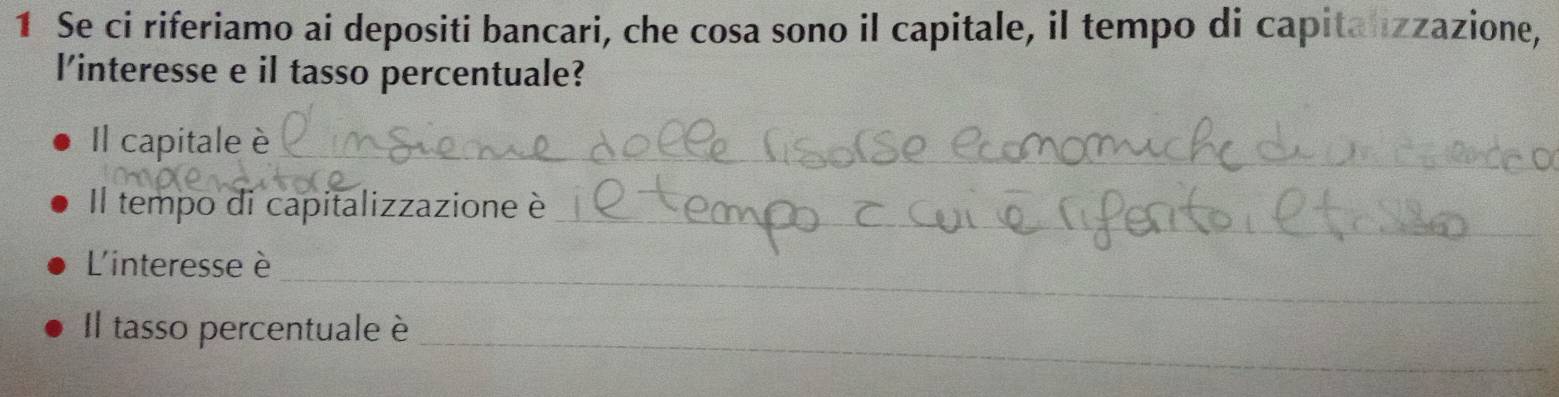 1 Se ci riferiamo ai depositi bancari, che cosa sono il capitale, il tempo di capitalizzazione,
l'interesse e il tasso percentuale?
• Il capitale è l'insieme delle risorse economiche di
imprenditore
• Il tempo di capitalizzazione è il tempo a cui è riferito il tasso
• L'interesse è
• Il tasso percentuale è